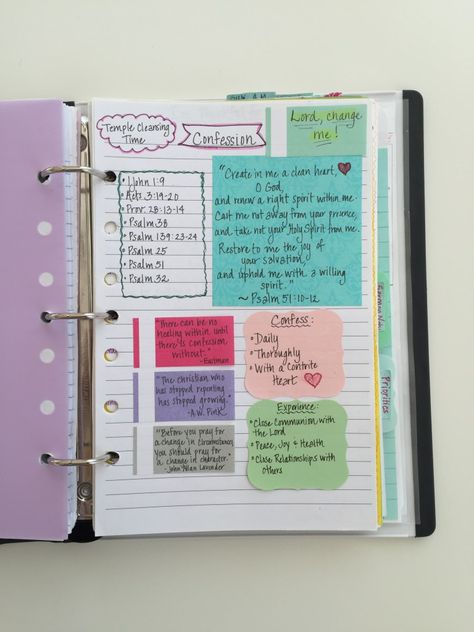 Temple Cleansing
Time
Confession
Lord, change
me!
1 John 1:9
Acts 3:19-20
Prov. 28:13-14
Psalm 38
Psalm 139:23-24
Psalm 25
Psalm 51
Psalm 32
"Create in me a clean heart,
O God,
and renew a right spirit within me.
Cast me not away from your presence,
and take not your Holy Spirit from me.
Restore to me the joy of
your salvation,
and uphold me with a willing
spirit."
~ Psalm 51:10-12
"There can be no
healing within until
there is confession
without."
-Eastman
"The christian who
has stopped repenting
has stopped growing."
-A.W. Pink
"Before you pray for
a change in circumstances,
you should pray for
a change in character."
-John Alan Lavender
Confess:
Daily
Thoroughly
With a Contrite
Heart
Experience:
Close Communion with
the Lord
Peace, Joy & Health
Close Relationships with
others
Priorities